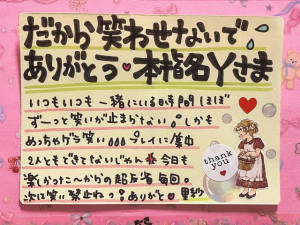 だから笑わせないで
ありがとう♥本指名Yさま
いつもいつも一緒にいる時間ほぼ
ずーっと笑いが止まらない。しかも
めっちゃゲラ笑。。。プレイに集中
2人ともできてないじゃん 今日も
楽しかったこ〜からの超反省毎回。
次は笑い禁止ねっ!ありがと♥里紗
thank
you